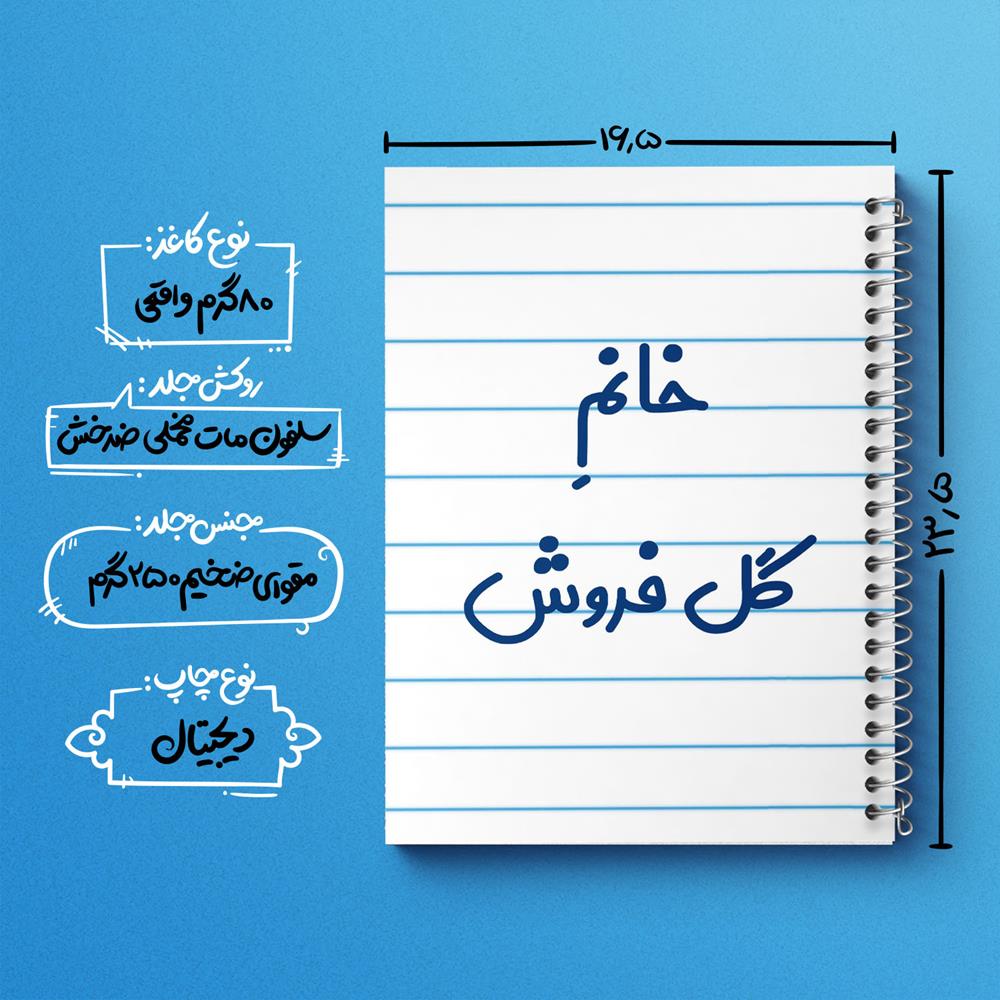 ۱۶,۵
۲۳,۵
خانمِ
گل فروش
نوع کاغذ:
۸۰گرم واقعی
روکش جلد:
سلفون مات مخملی ضدخش
جنس جلد:
مقوای ضخیم ۲۵۰ گرم
نوع چاپ:
دیجیتال